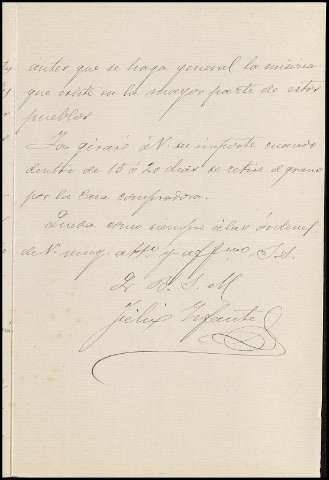 antes que se haga general la miseria
que existe en la mayor parte de estos
pueblos
giraré á V. su importe cuando
dentro de 15 á 20 dias se retire el grano
por la casa compradora.
Queda como siempre á las órdenes
de V. muy atto. y affmo S.S.
Q. B. S. M
Félix Infante